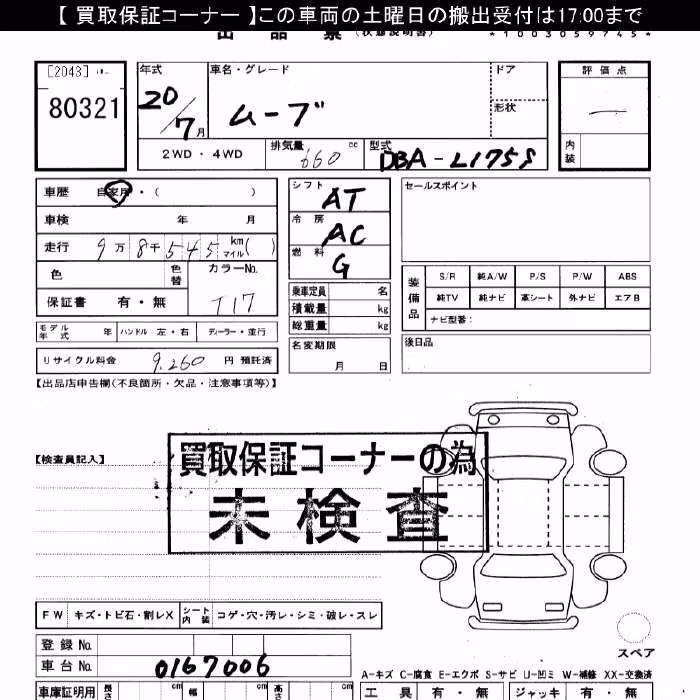 【 買取保証コーナー 】この車両の土曜日の搬出受付は17:00まで
出 品 票 (状態説明書) *1003059745*
[2043]
80321
年式 車名・グレード ドア 評価点
20/7月 ムーブ 形状 —
2WD ・ 4WD 排気量 660 cc 型式 DBA-L175S 内装
車歴 自家用 ・ ( )
車検 年 月
走行 9万8千545 km マイル ( )
色 色替 カラーNo.
保証書 有・無 T17
モデル年式 年 ハンドル 左・右 ディーラー・並行
リサイクル料金 9,260 円 預託済
シフト AT
冷房 AC
燃料 G
乗車定員 名
積載量 kg
総重量 kg
名変期限
月 日
セールスポイント
装備品 S/R 純A/W P/S P/W ABS
純TV 純ナビ 革シート 外ナビ エアB
ナビ型番:
後日品
【出品店申告欄(不良箇所・欠品・注意事項等)】
【検査員記入】
買取保証コーナーの為
未検査
FW キズ・トビ石・割レX シート内装 コゲ・穴・汚レ・シミ・破レ・スレ
登録 No.
車台 No. 0167006
スペア
A-キズ C-腐食 E-エクボ S-サビ U-凹ミ W-補修 XX-交換済
車庫証明用 長さ cm 幅 cm 高さ cm 工具 有・無 ジャッキ 有・無